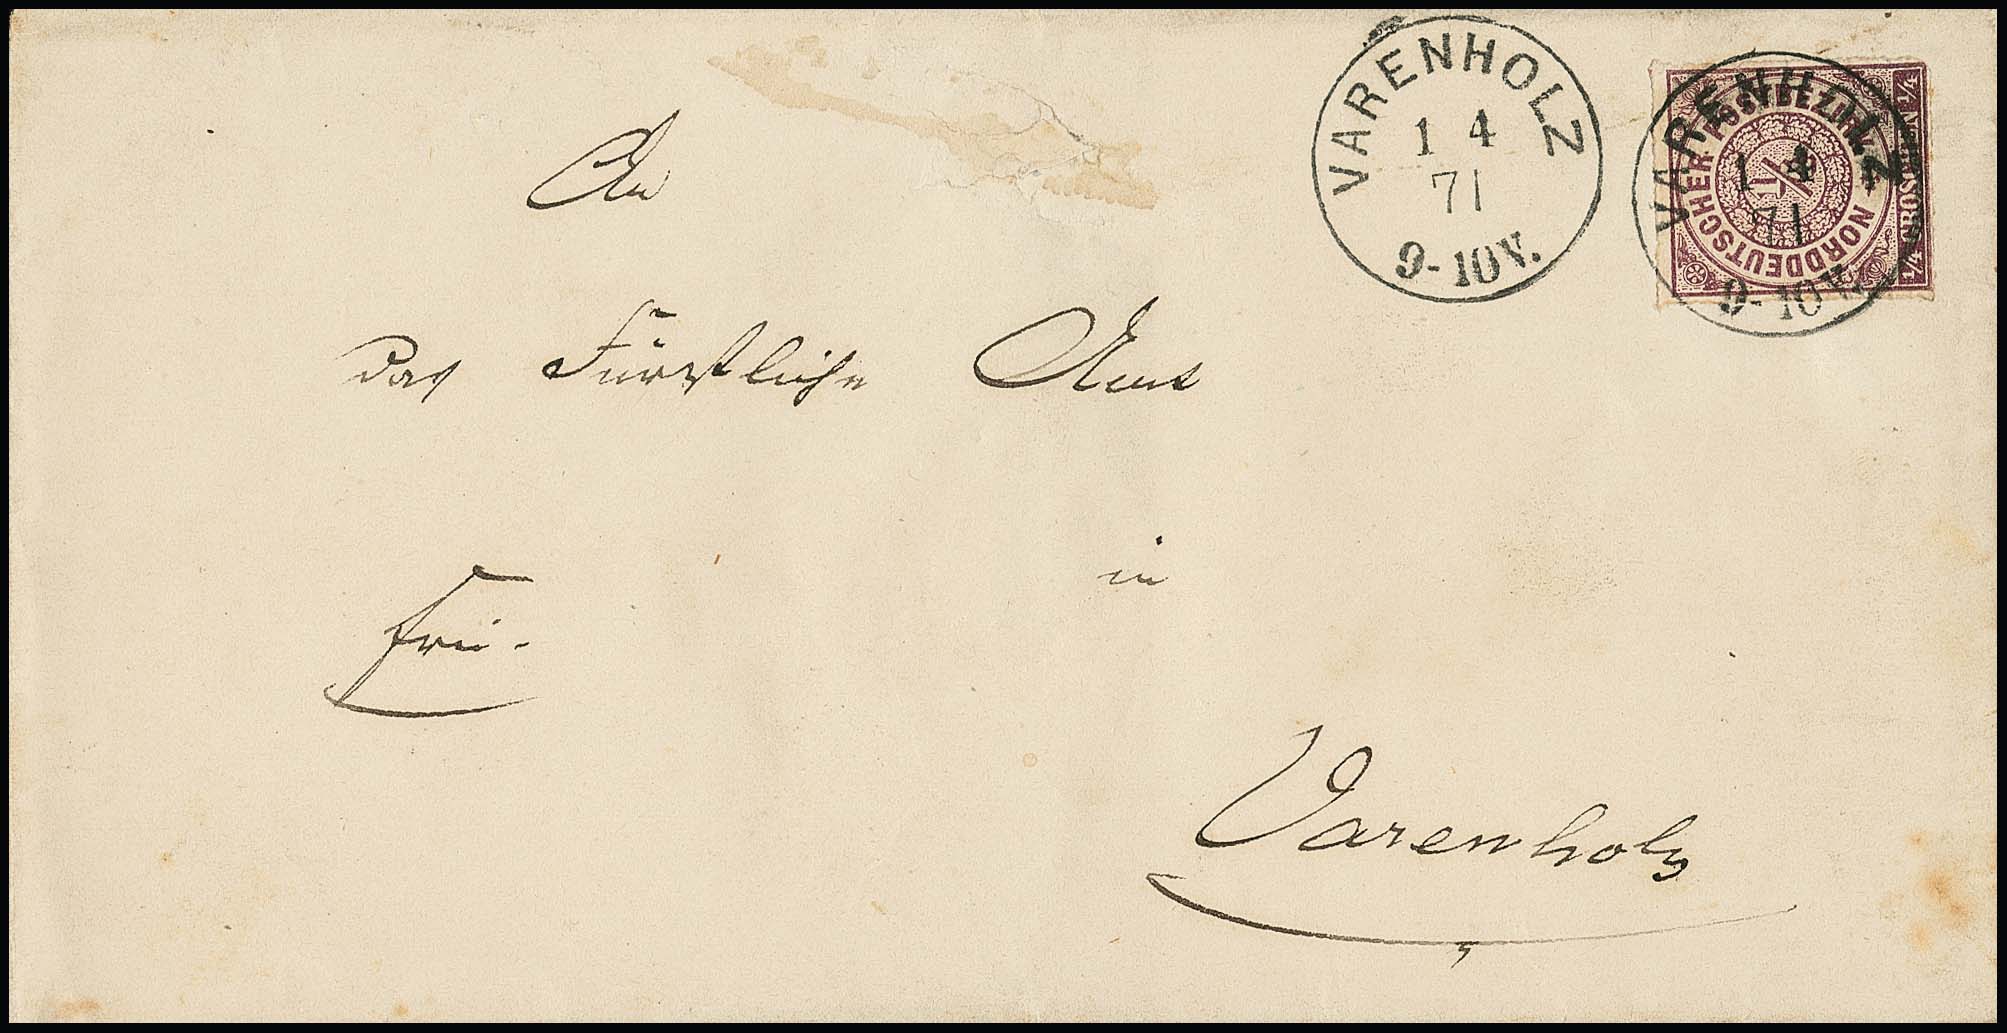 VARENHOLZ
1 4
71
9-10V.
VARENHOLZ
1 4
71
9-10V.
NORDDEUTSCHER POSTBEZIRK
1/4
1/4 GROSCHEN 1/4
An
das Fürstliche Amt
in
frei.
Varenholz